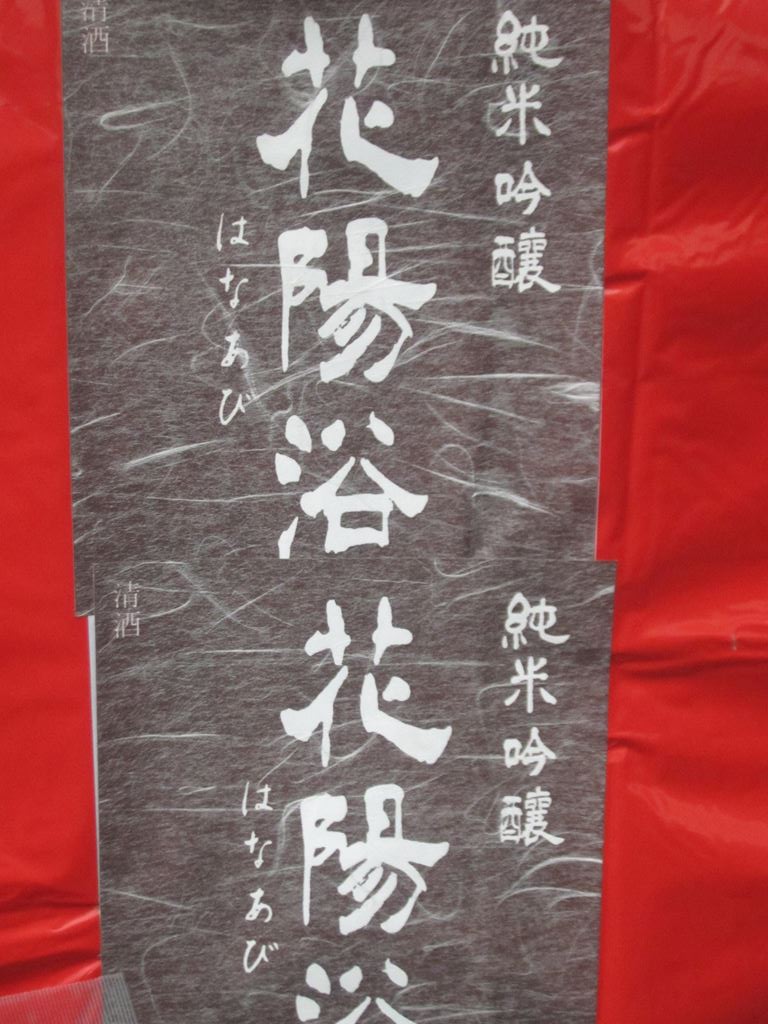 純米吟醸
花陽浴
はなあび
清酒
純米吟醸
花陽浴
はなあび
清酒